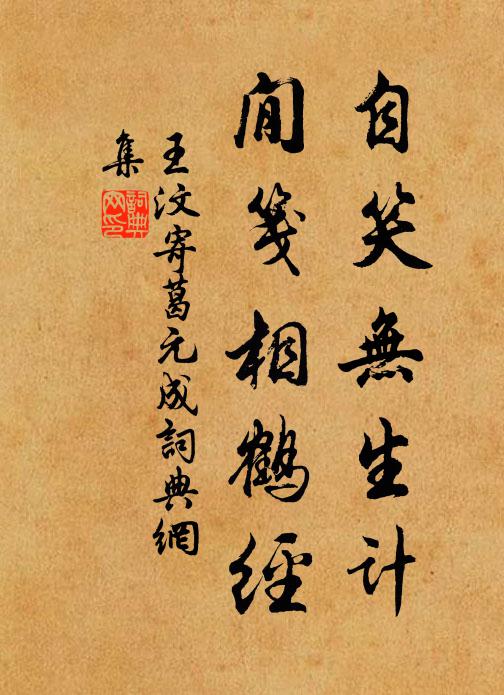 自笑無生計
閒箋相鶴經
王汶寄葛元成詞典網
集
詞典
网印